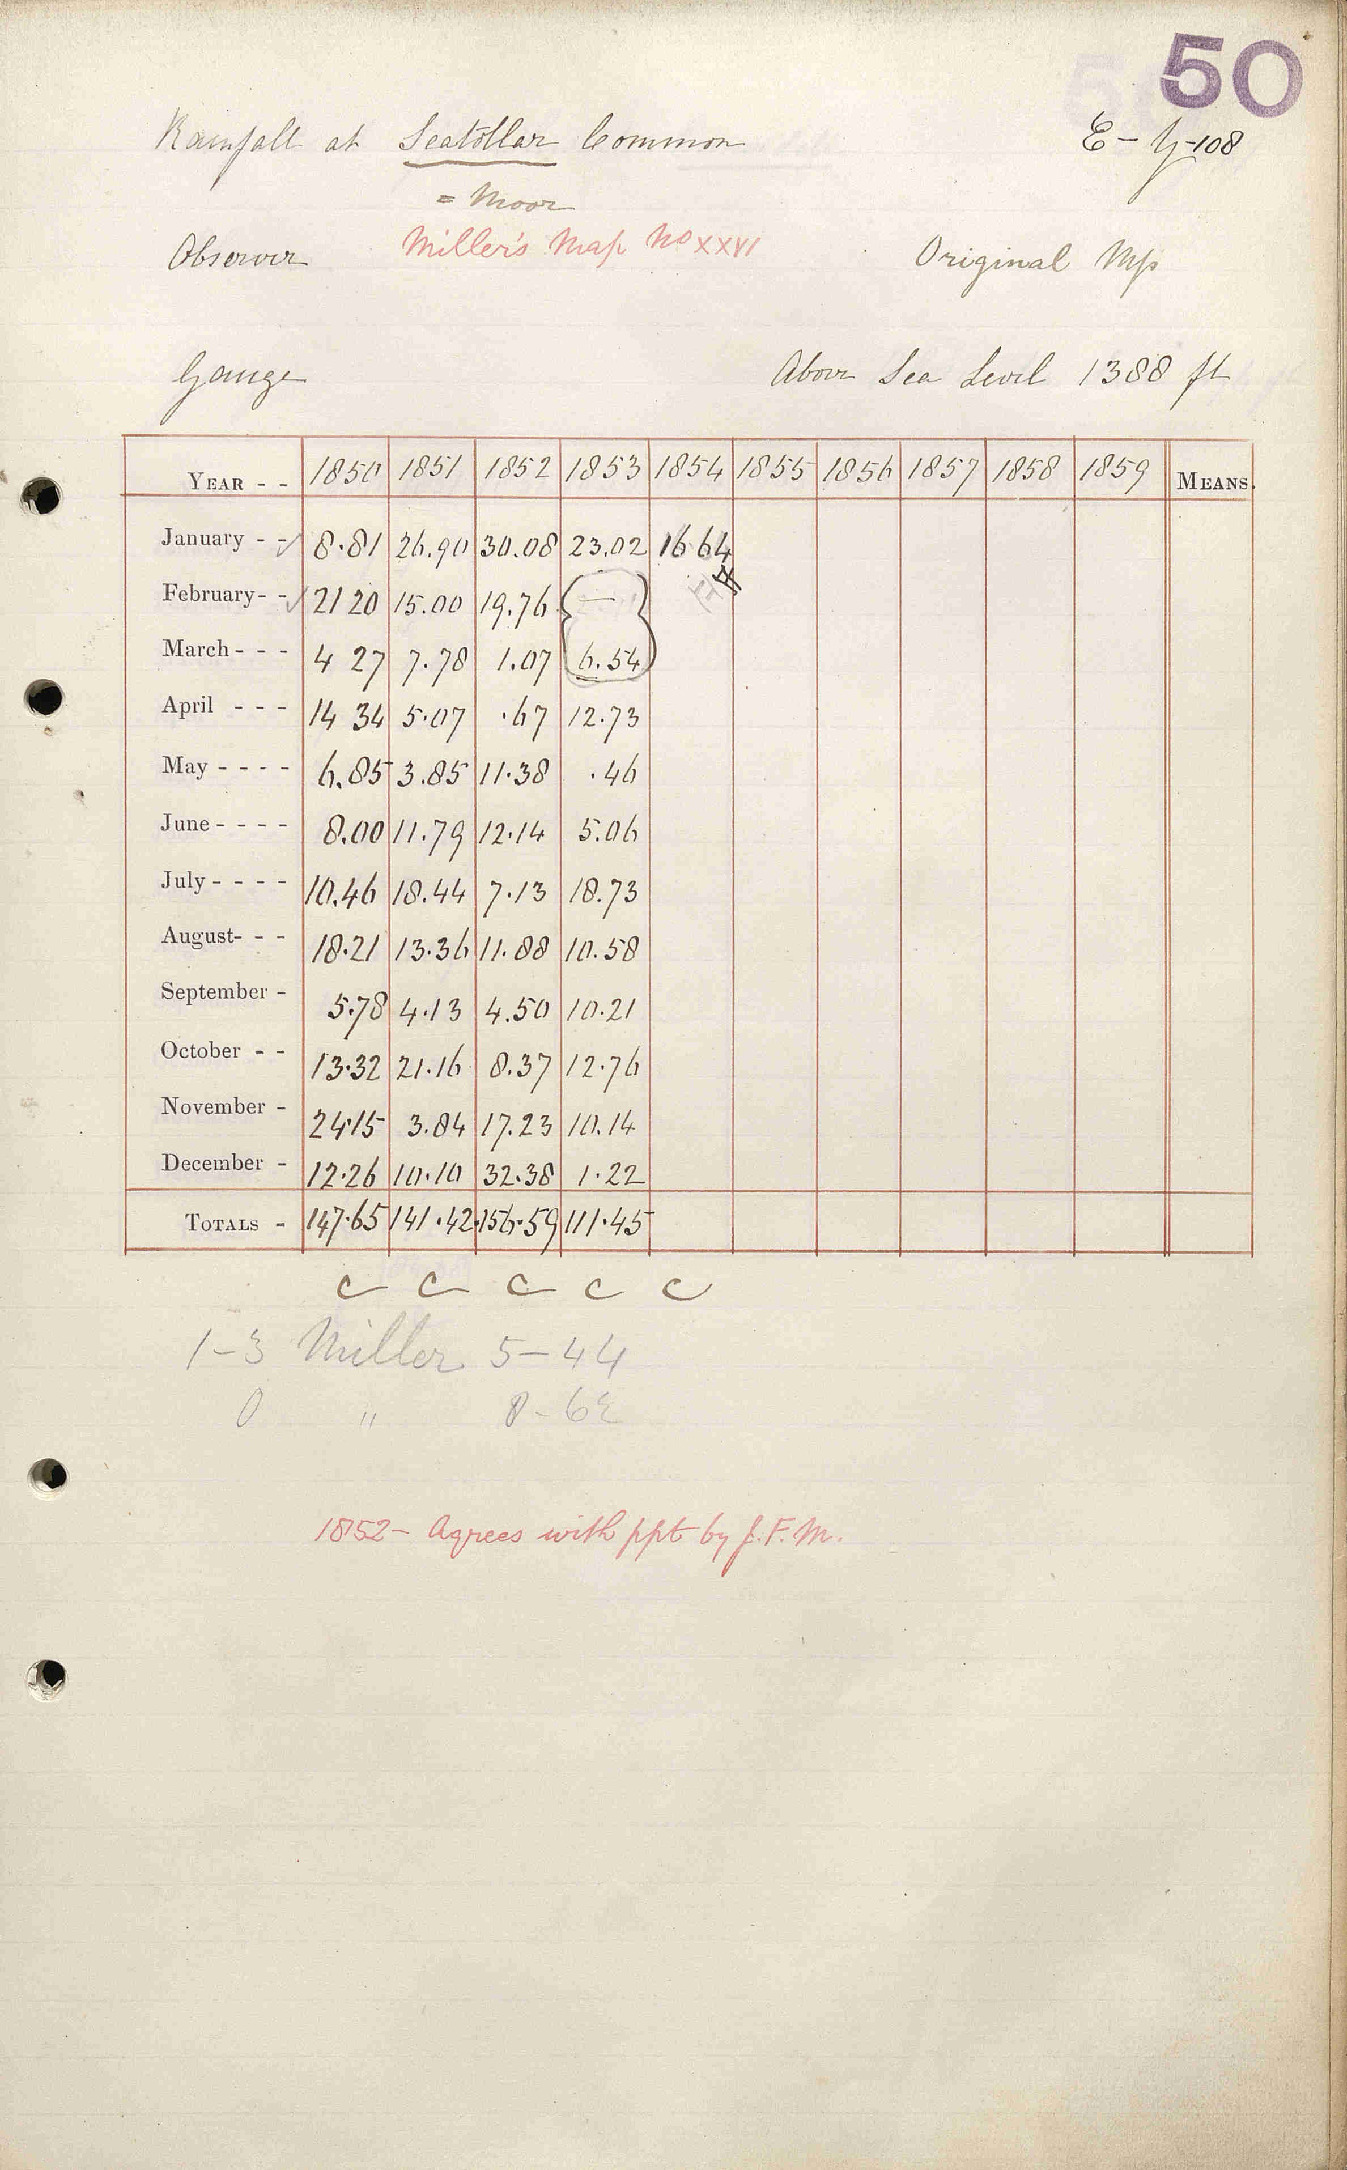 50
Rainfall at Seatollar Common
E - y-108
= Moor
Observer Miller's Map No XXVI Original Mss
Gauge Above Sea Level 1388 ft
YEAR - - 1850 1851 1852 1853 1854 1855 1856 1857 1858 1859 MEANS.
January - - 8.81 26.90 30.08 23.02 16 64
February - - 21 20 15.00 19.76 —
March - - - 4 27 7.78 1.07 6.54
April - - - 14 34 5.07 .67 12.73
May - - - - 6.85 3.85 11.38 .46
June - - - - 8.00 11.79 12.14 5.06
July - - - - 10.46 18.44 7.13 18.73
August- - - 18.21 13.36 11.88 10.58
September - 5.78 4.13 4.50 10.21
October - - 13.32 21.16 8.37 12.76
November - 24.15 3.84 17.23 10.14
December - 12.26 10.10 32.38 1.22
TOTALS - 147.65 141.42 156.59 111.45
c c c c c
1-3 Miller 5-44
0 " 8-62
1852 - Agrees with ppt by J.F.M.